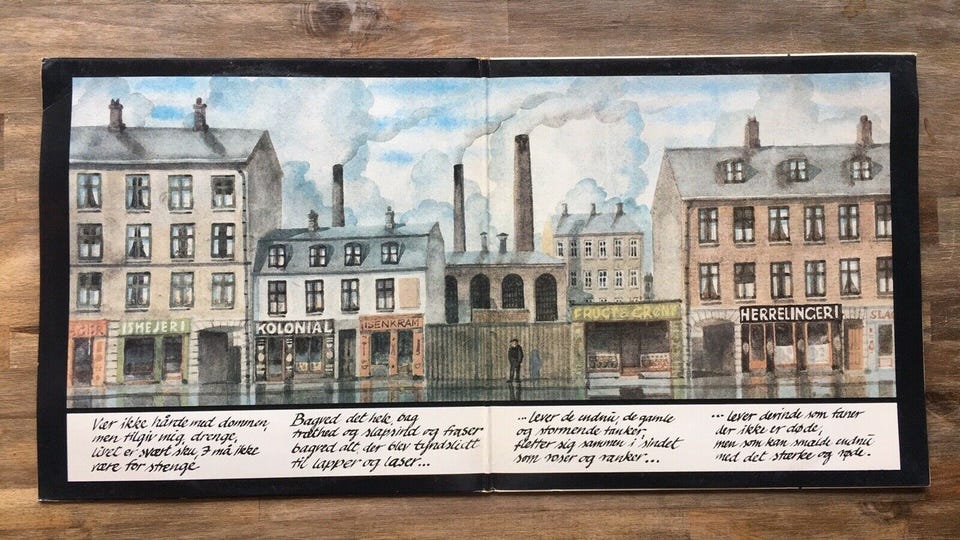 ISMEJERI
KOLONIAL
ISENKRAM
FRUGT & GRØNT
HERRELINGERI
SLAG
Vær ikke hårde med dommen,
men tilgiv mig, drenge,
livet er svært sku, I må ikke
være for strenge
Bagved det hele, bag
træthed og slapsind og fraser
bagved alt, der blev tyndslidt
til lapper og laser...
...lever de endnu, de gamle
og stormende tanker,
fletter sig sammen i sindet
som roser og ranker...
...lever derinde som faner
der ikke er døde,
men som kan smælde endnu
med det stærke og røde.